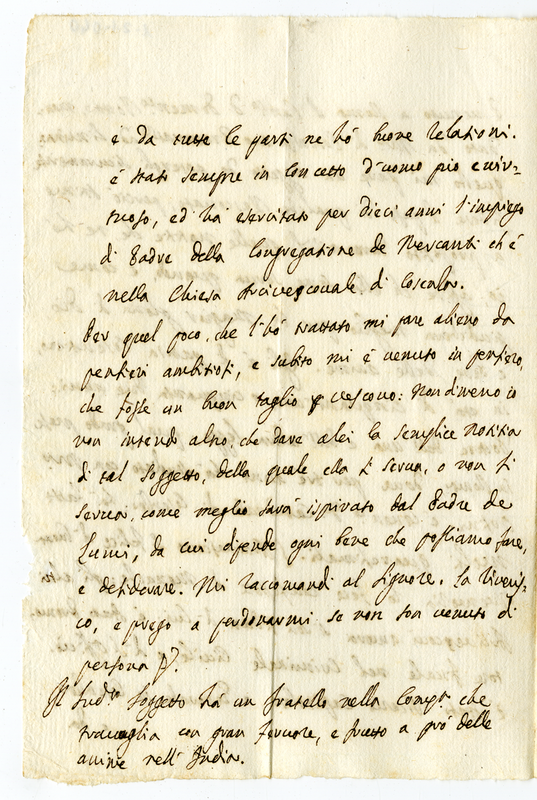 è da tutte le parti ne hò buone relationi.
è stato sempre in concetto d'uomo pio e vir-
tuoso, ed hà esercitato per dieci anni l'impiego
di Padre della Congregatione de Mercanti ch'è
nella Chiesa Arcivescovale di
Per quel poco, che l'hò trattato mi pare alieno da
pensieri ambitiosi, e subito mi è venuto in pensiero,
che fosse un buon taglio p Vescovo: Nondimeno io
non intendo altro, che dare a lei la semplice notitia
di tal soggetto, della quale ella si serva, o non si
serva, come meglio sarà ispirato dal Padre de
Lumi, da cui dipende ogni bene che possiamo fare,
e desiderare. Mi raccomandi al Signore. La riveris-
co, e prego a perdonarmi se non son venuto di
persona
Il sud.o soggetto hà un fratello nella Comp.a che
travaglia con gran fervore, e frutto a prò delle
anime nell'India.